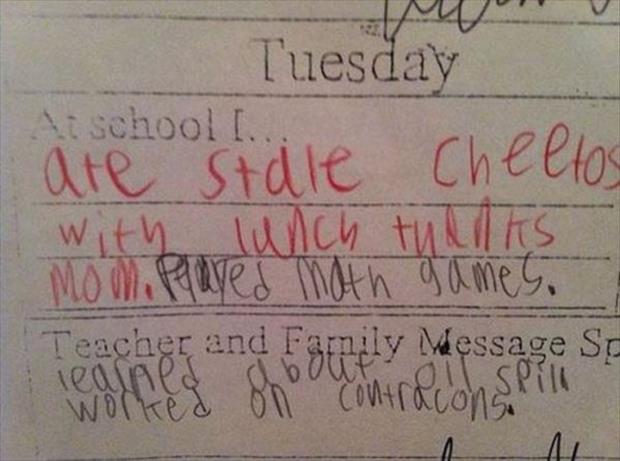 Tuesday
At school I...
ate stale cheetos
with lunch thanks
mom. Played math games.
Teacher and Family Message Sp
learned about oil spill
worked on contracons.